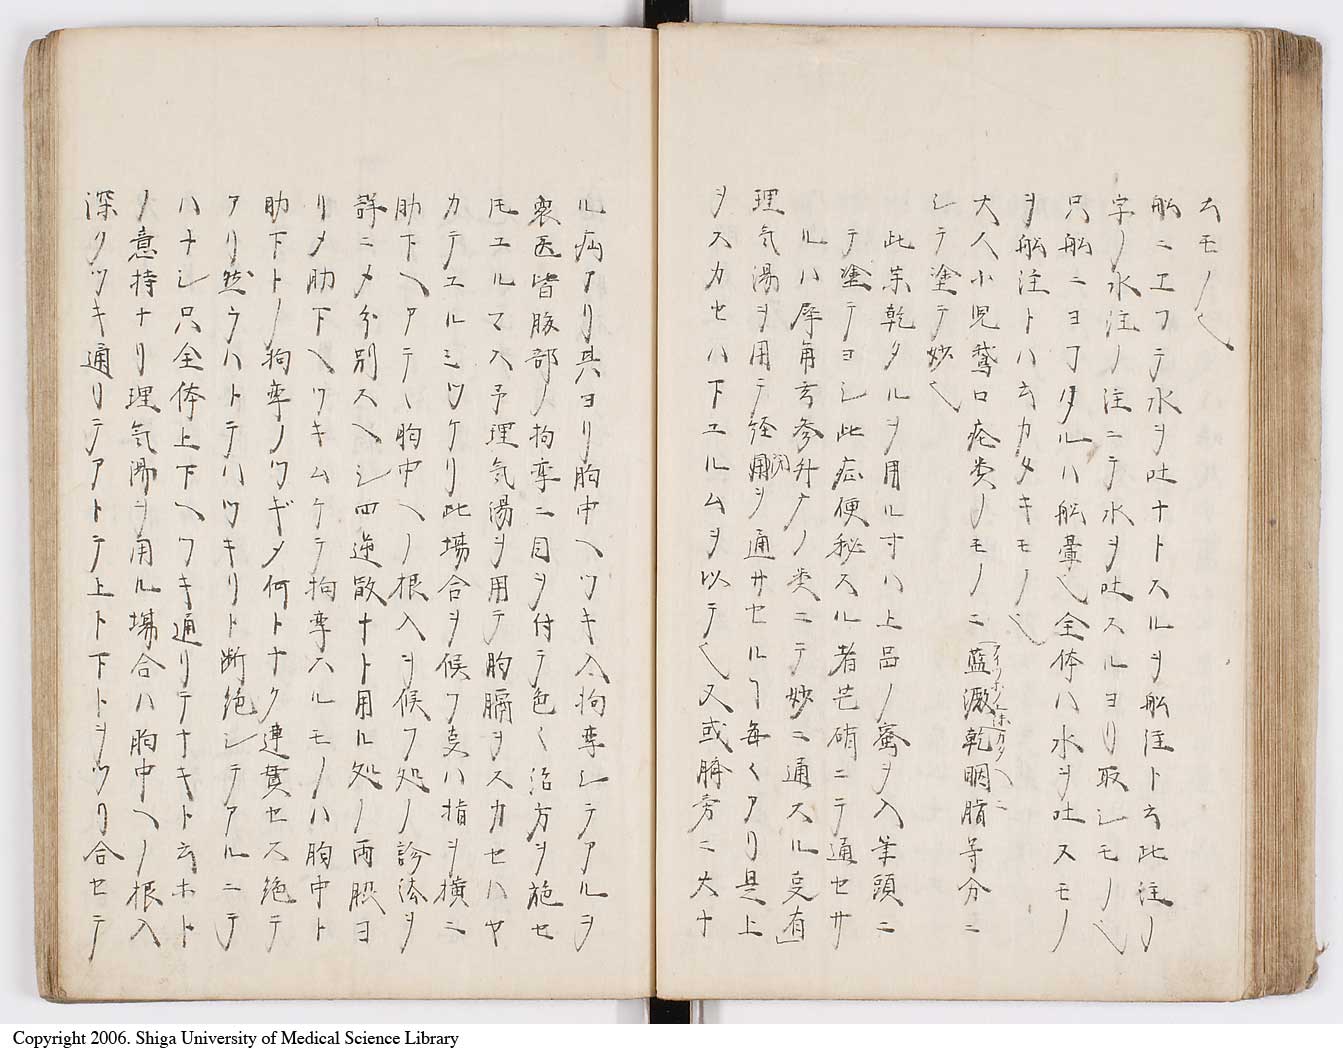 云モノ也
船ニエフテ水ヲ吐ナトスルヲ船注ト云此注ノ
字ノ水注ノ注ニテ水ヲ吐スルヨリ取シモノ也
只船ニヨフタルハ船暈也全体ハ水ヲ吐スモノ
ヲ船注トハ云カタキモノ也
大人小児鵞口瘡類ノモノニ藍澱乾臙脂等分ニ
シテ塗テ妙也
此末乾タルヲ用ル寸ハ上品ノ蜜ヲ入筆頭ニ
テ塗テヨシ此症便秘スル者芒硝ニテ通セサ
ルハ犀角玄参升ナノ類ニテ妙ニ通スル㕝有」
理気湯ヲ用テ経閉ヲ通サセルフ毎々アリ是上
ヲスカセハ下エルムヲ以テ也又或臍旁ニ大ナ
ル病アリ其ヨリ胸中ヘツキ入拘挛シテアルヲ
衆医皆腹部ノ拘挛ニ目ヲ付テ色々治方ヲ施セ
𪜈エルマス予理気湯ヲ用テ胸膈ヲスカセハヤ
カテエルミツケリ此場合ヲ候フ㕝ハ指ヲ横ニ
肋下ヘアテヽ胸中ヘノ根入ヲ候フ処ノ診法ヲ
詳ニメ分別スヘシ四逆散ナト用ル処ノ両股ヨ
リメ肋下ヘツキムケテ拘挛スルモノハ胸中ト
肋下トノ拘挛ノツギメ何トナク連貫セス絶テ
アリ然ラハトテハツキリト断絶シテアルニテ
ハナシ只全体上下ヘツキ通リテナキト云ホト
ノ意持ナリ理気湯ヲ用ル場合ハ胸中ヘノ根入
深クツキ通リテアトテ上ト下トヲツリ合セテ
Copyright 2006. Shiga University of Medical Science Library